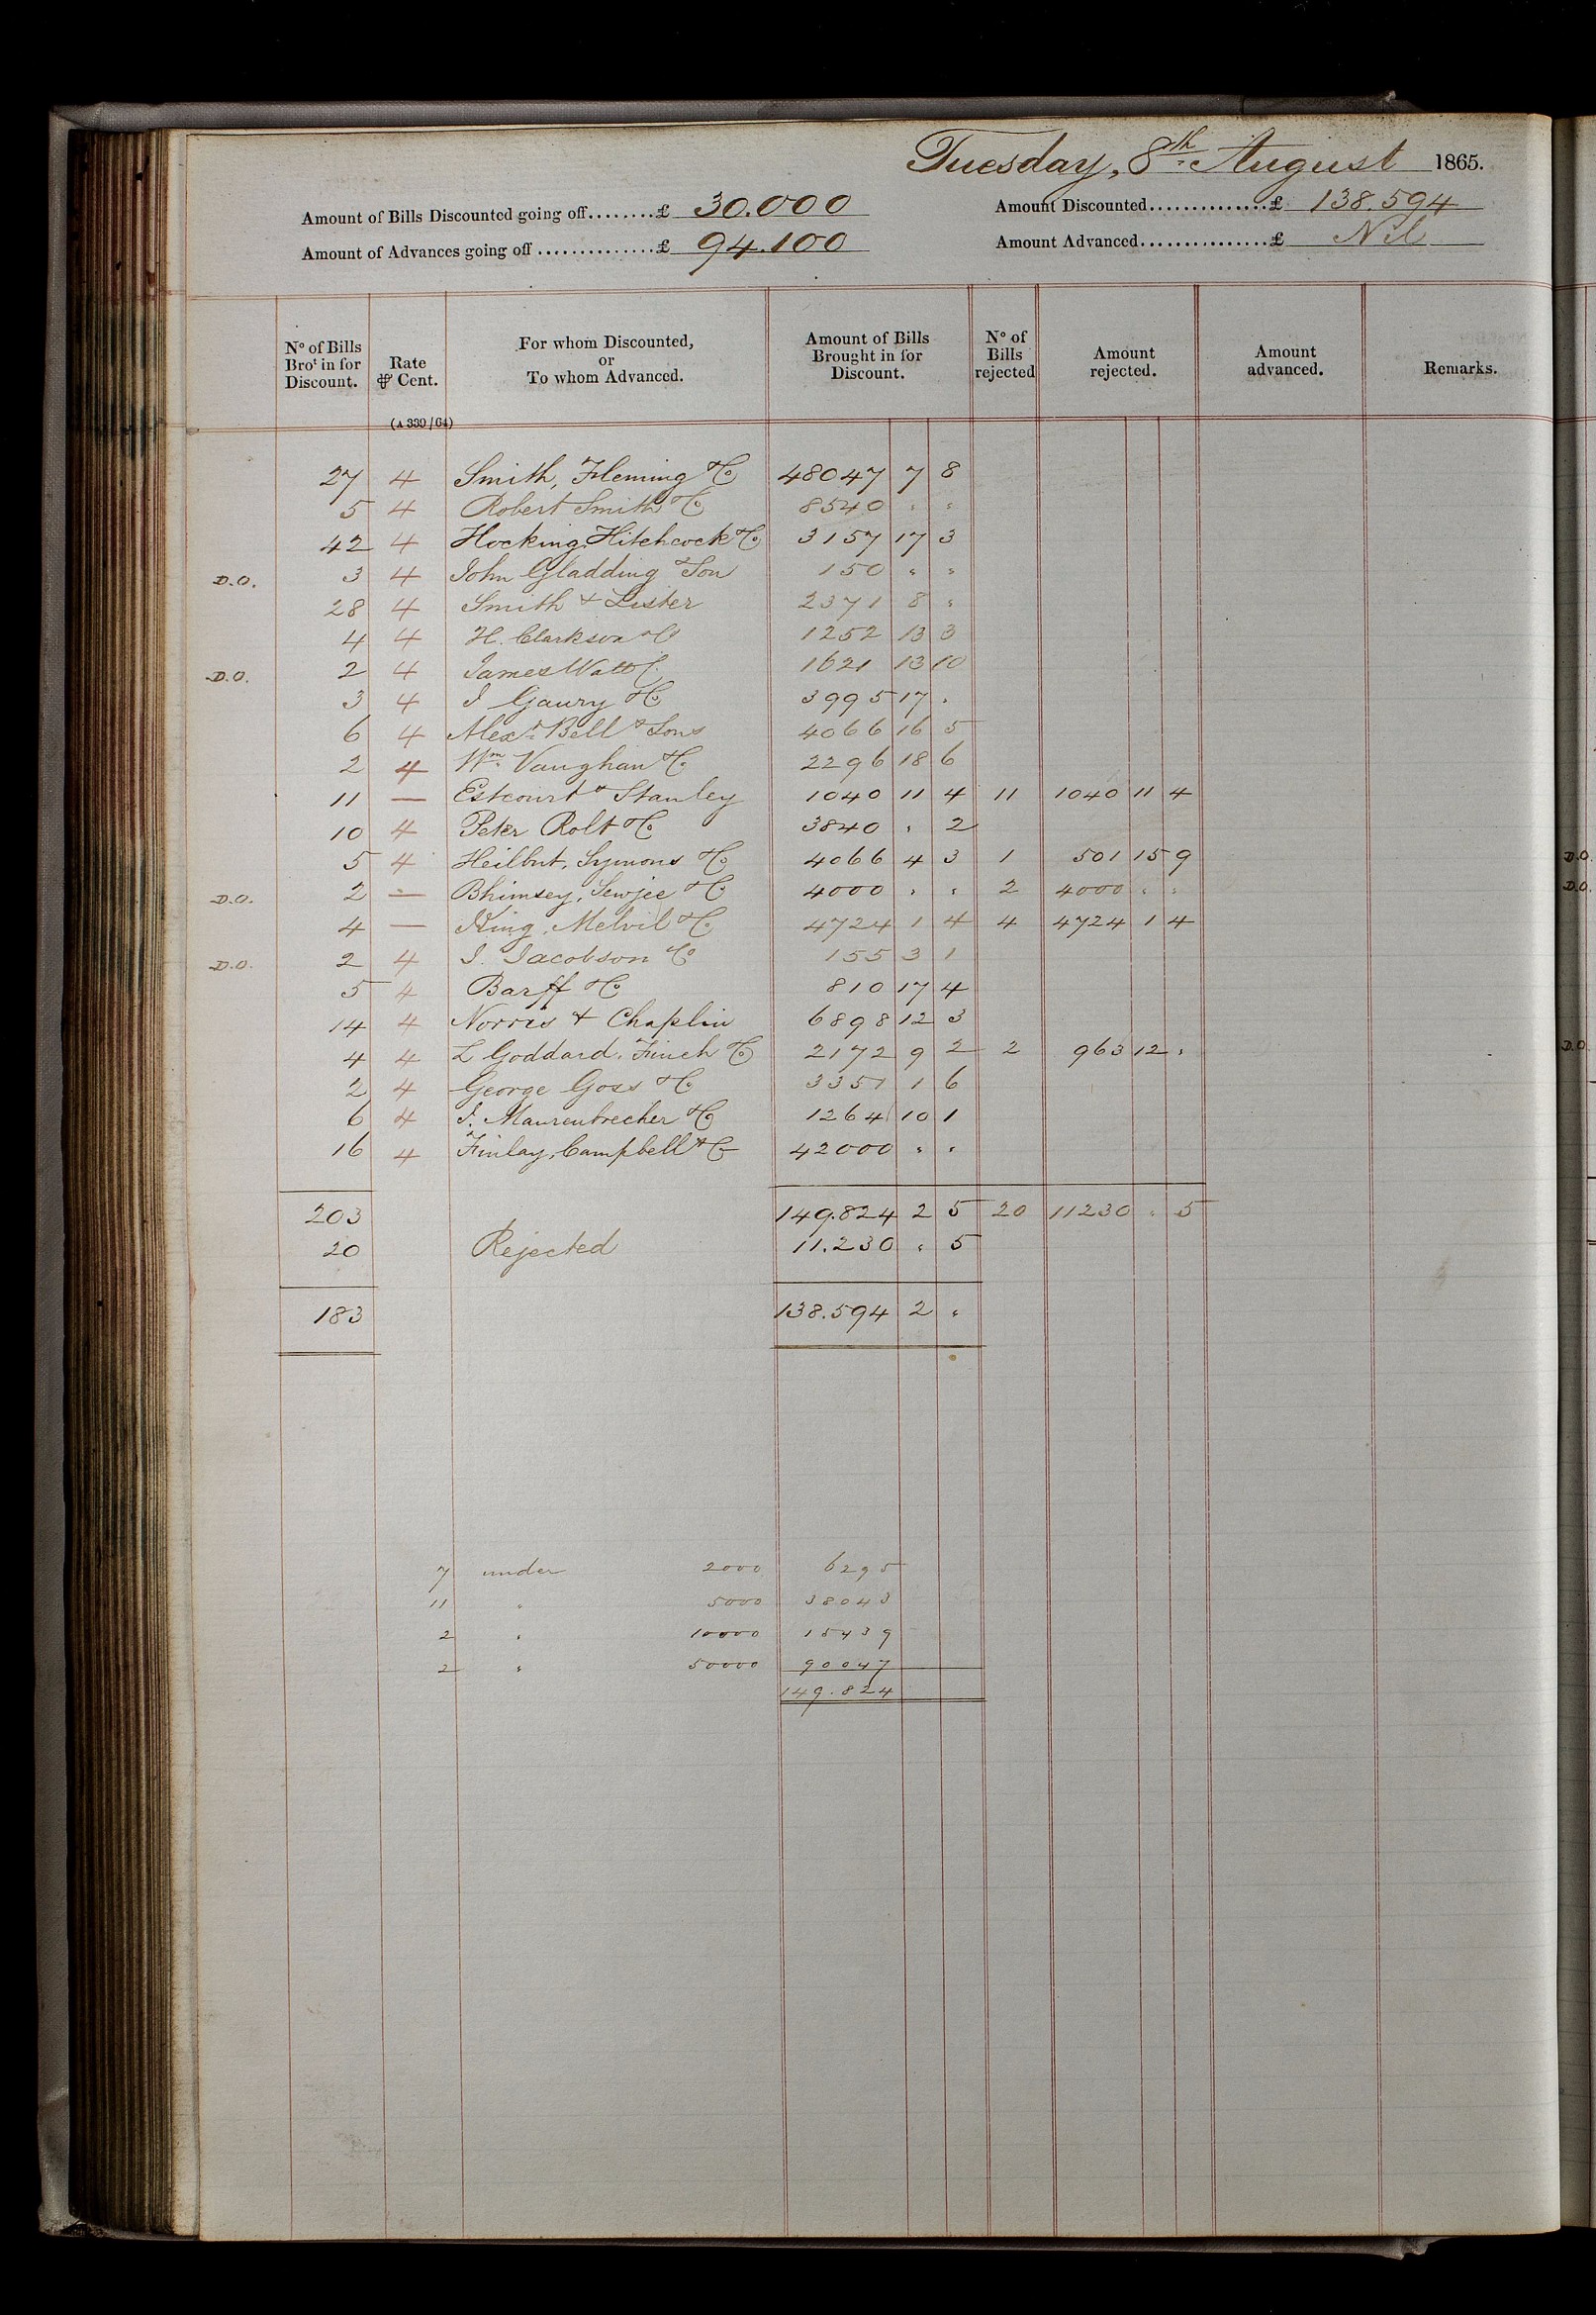 Tuesday, 8th August 1865.
Amount of Bills Discounted going off........£ 30.000 Amount Discounted..............£ 138.594
Amount of Advances going off ..............£ 94.100 Amount Advanced...............£ Nil
No of Bills Brot in for Discount. Rate ⅌ Cent. For whom Discounted, or To whom Advanced. Amount of Bills Brought in for Discount. No of Bills rejected Amount rejected. Amount advanced. Remarks.
(A 339/64)
27 4 Smith, Fleming & Co 48047 7 8
5 4 Robert Smith & Co 8540 " "
42 4 Hocking, Hitchcock & Co 3157 17 3
D.O. 3 4 John Gladding & Son 150 " "
28 4 Smith & Lister 2371 8 "
4 4 H. Clarkson & Co 1252 13 3
D.O. 2 4 James Watt & Co 1621 13 10
3 4 I Gaury & Co 3995 17 "
6 4 Alexr Bell & Sons 4066 16 5
2 4 Wm Vaughan & Co 2296 18 6
11 — Estcourt & Stanley 1040 11 4 11 1040 11 4
10 4 Peter Rolt & Co 3840 " 2
5 4 Heilbut, Symons & Co 4066 4 3 1 501 15 9 D.O.
D.O. 2 — Bhimsey, Sewjee & Co 4000 " " 2 4000 " " D.O.
4 — King, Melvil & Co 4724 1 4 4 4724 1 4
D.O. 2 4 I. Jacobson & Co 155 3 1
5 4 Barff & Co 810 17 4
14 4 Norris & Chaplin 6898 12 3
4 4 L Goddard, Finch & Co 2172 9 2 2 963 12 " D.O.
2 4 George Goss & Co 3351 1 6
6 4 I. Maurenbrecher & Co 1264 10 1
16 4 Finlay, Campbell & Co 42000 " "
203 149.824 2 5 20 11230 " 5
20 Rejected 11.230 " 5
183 138.594 2 "
7 under 2000 6295
11 " 5000 38043
2 " 10000 15439
2 " 50000 90047
149.824